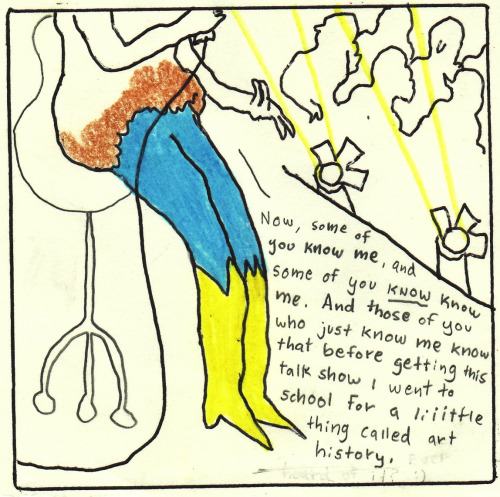 Now, some of
you know me, and
some of you know know
me. And those of you
who just know me know
that before getting this
talk show I went to
school for a liiittle
thing called art
history.
heard of it? :)